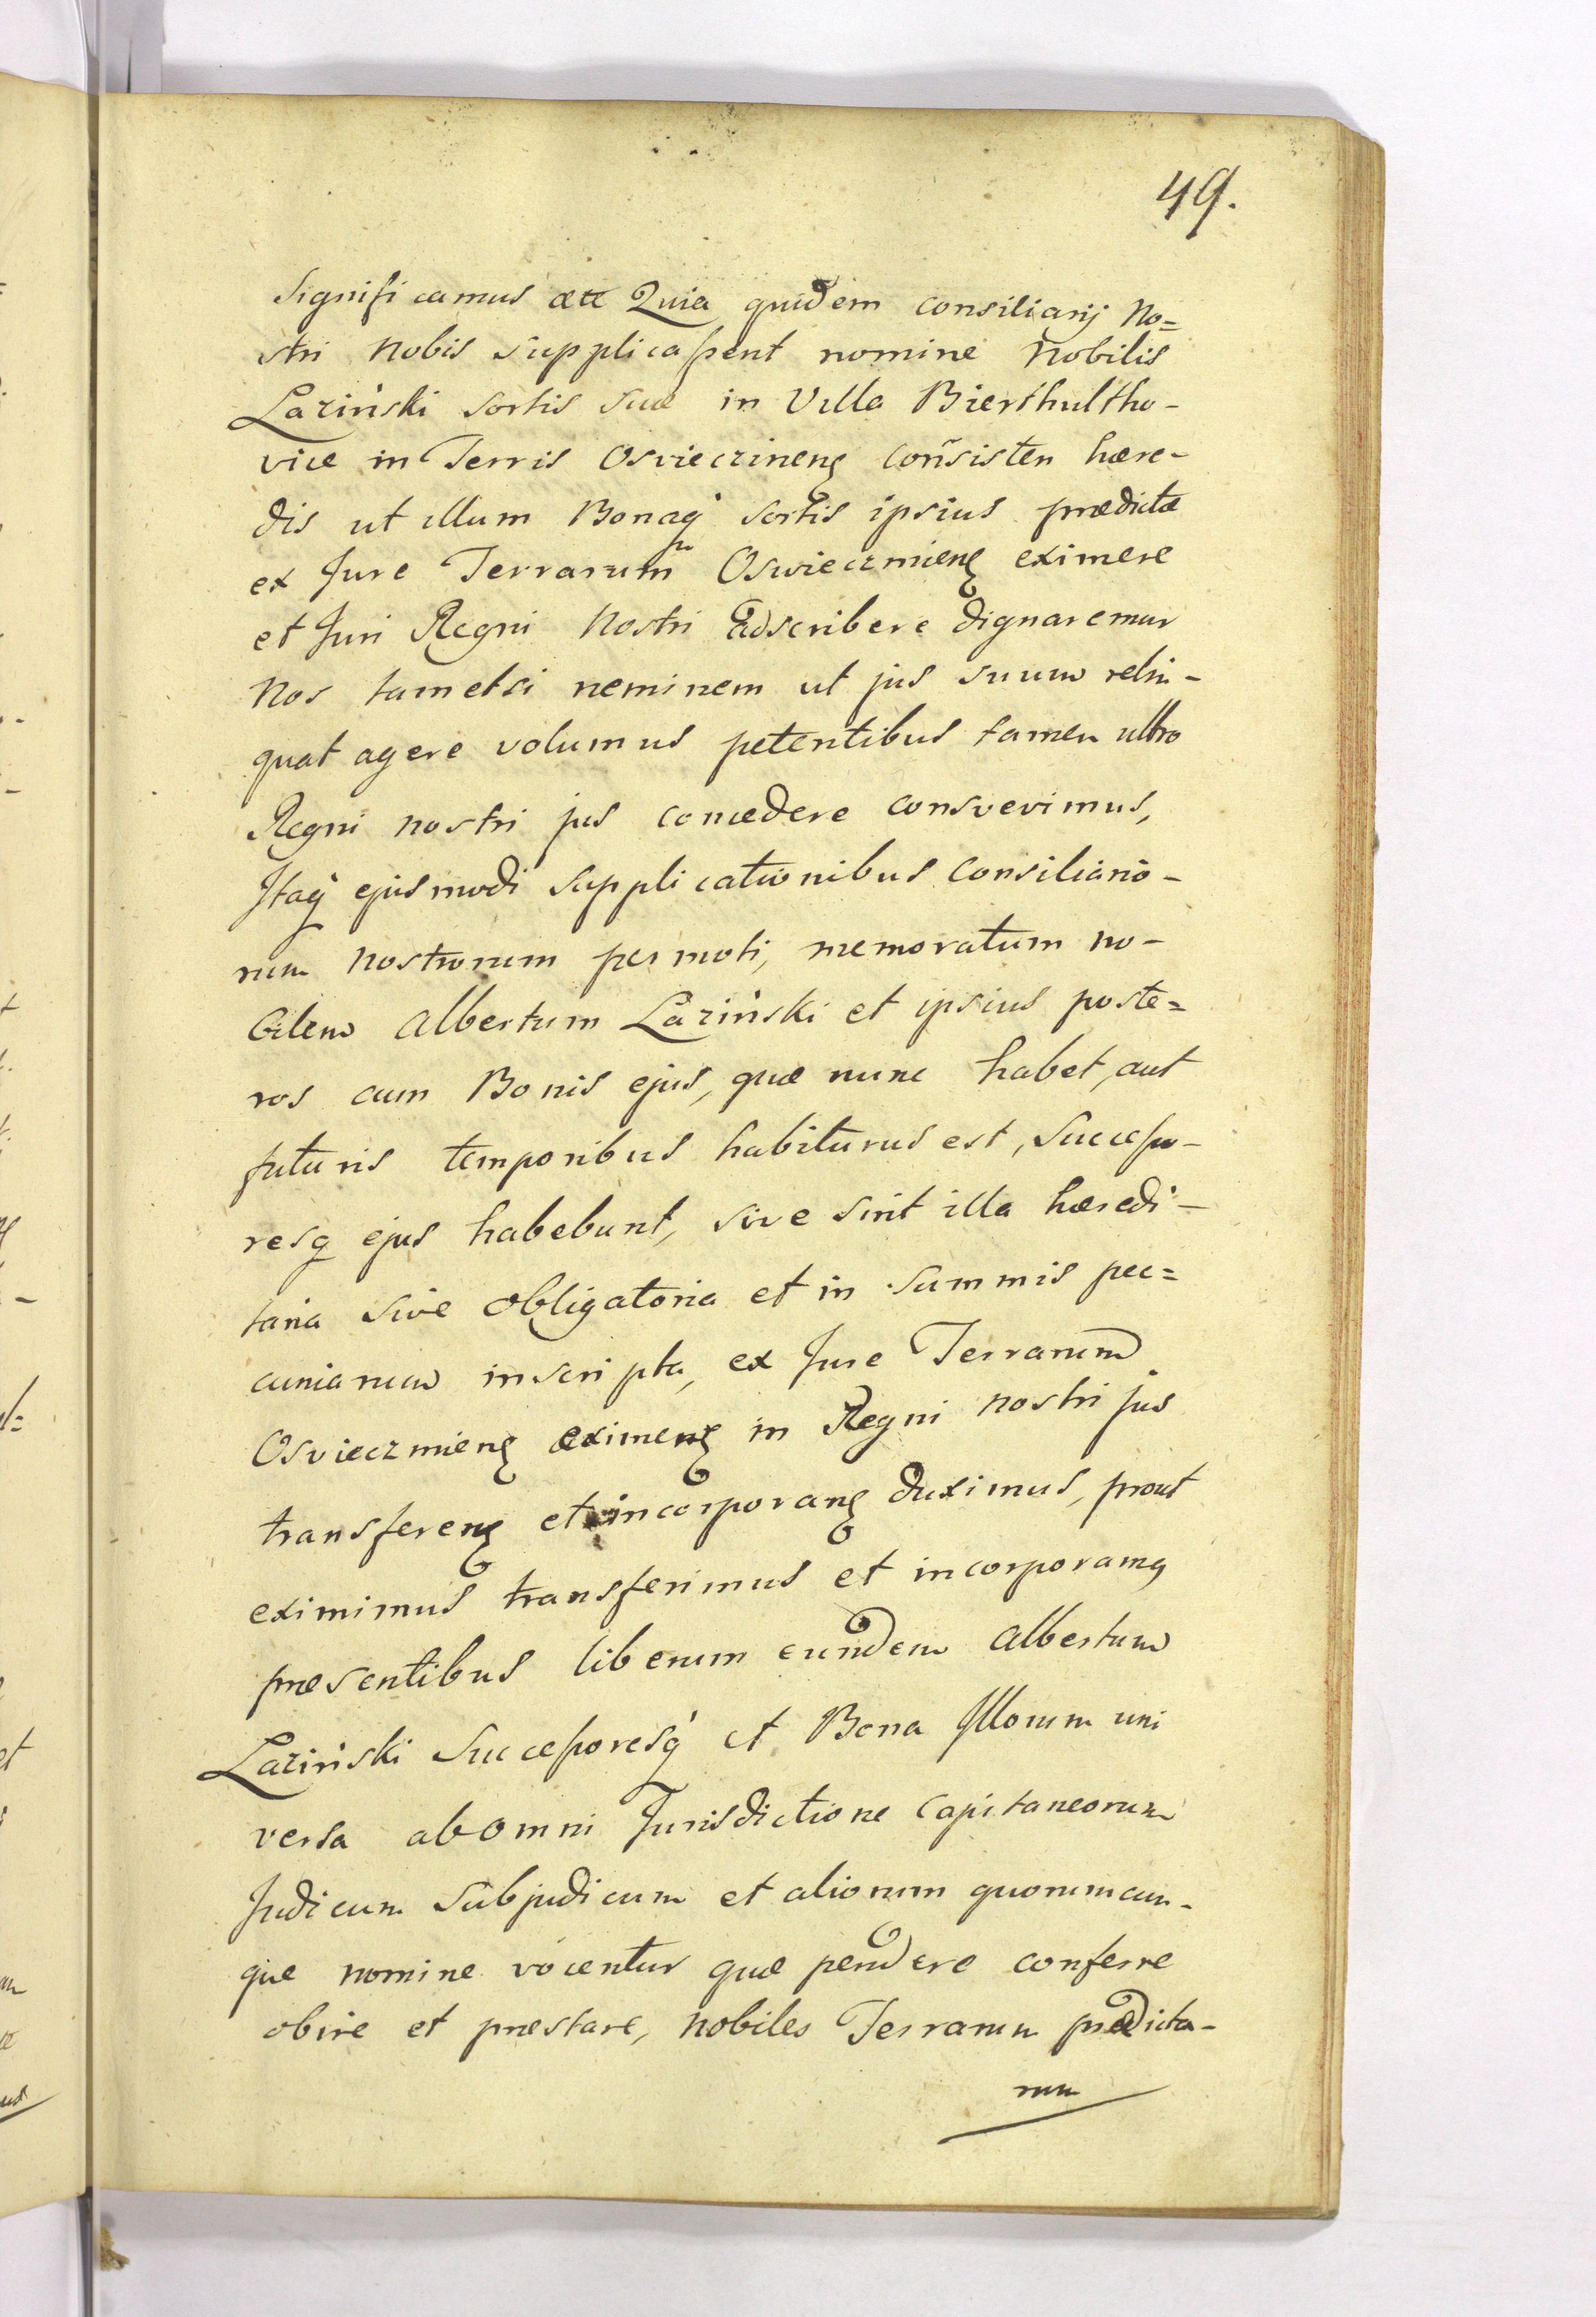 49.
Significamus ett Quia quidem consiliarij No=
stri Nobis supplicassent nomine Nobilis
Laziński sortis suæ in Villa Bierthultho-
vice in Terris Osvieczinenȝ cons̄isten hære-
dis ut illum Bonaq́ sortis ipsius prædictæ
ex Jure Terrarum Oswieczmienȝ eximere
et Juri Regni Nostri adscribere dignaremur
Nos tametsi neminem ut jus suum relin-
quat agere volumus petentibus tamen ultro
Regni nostri jus concedere consvevimus,
Itaq́ ejusmodi supplicationibus Consiliario-
rum Nostrorum permoti, memoratum no-
bilem Albertum Laziński et ipsius poste=
ros cum Bonis ejus, quæ nunc habet, aut
futuris temporibus habiturus est, Successo-
resq ejus habebunt, sive sint illa hæredi-
taria sive obligatoria et in summis pec=
cuniarum inscripta, ex Jure Terrarum
Osvieczmienȝ eximenȝ in Regni nostri jus
transferenȝ et incorporanȝ duximus, prout
eximimus transferimus et incorporamꝰ
præsentibus liberum eundem Albertum
Laziński Successoresq́ et Bona Illorum uni
versa ab omni Jurisdictione Capitaneorum
Judicum Subjudicum et aliorum quorumcun-
que nomine vocentur quæ pendere conferre
obire et præstare, Nobiles Terrarum prædicta-
rum